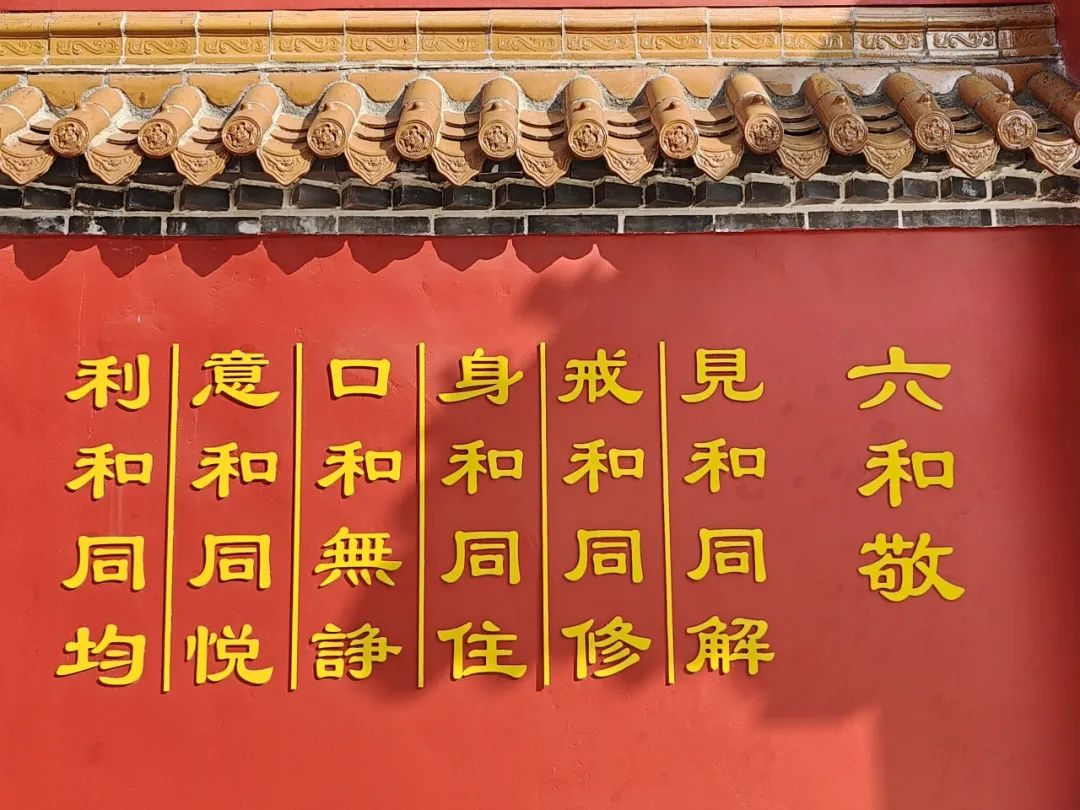 六和敬
見和同解
戒和同修
身和同住
口和無諍
意和同悦
利和同均